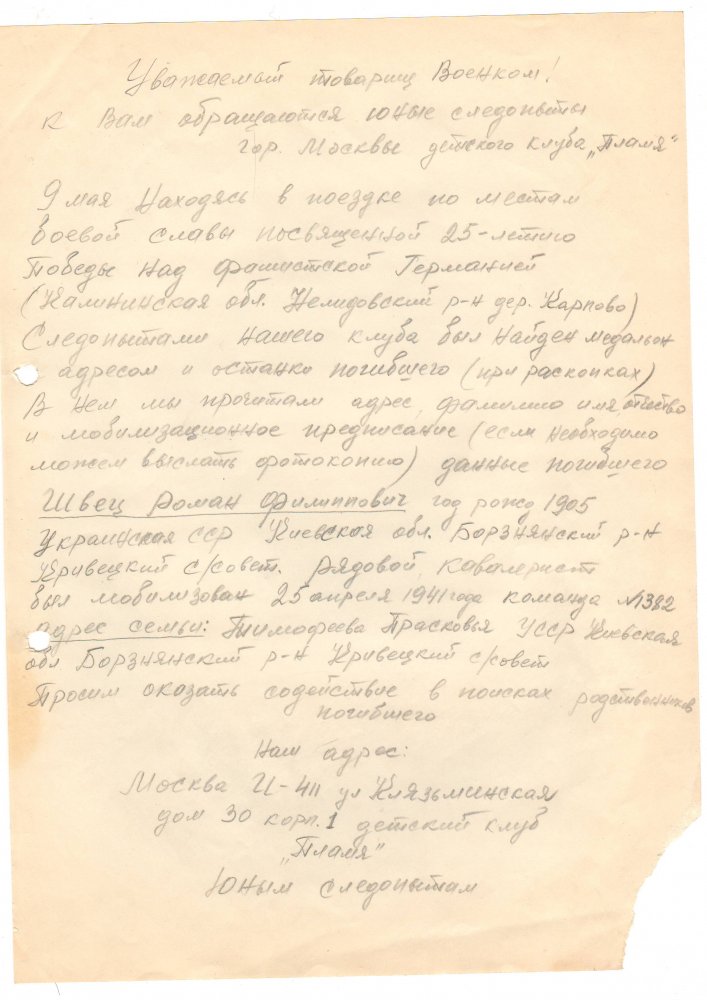 Уважаемый товарищ Военком!
к Вам обращаются юные следопыты
гор. Москвы детского клуба „Пламя"
9 мая находясь в поездке по местам
боевой славы посвященной 25-летию
Победы над фашистской Германией
(Калининская обл. Нелидовский р-н дер. Карпово)
Следопытами нашего клуба был найден медальон
с адресом и останки погибшего (при раскопках)
В нем мы прочитали адрес, фамилию имя отчество
и мобилизационное предписание (если необходимо
можем выслать фотокопию) данные погибшего
Швец Роман Филиппович год рожд 1905
Украинская ССР Киевская обл. Борзнянский р-н
Кривецкий с/совет. Рядовой, кавалерист
был мобилизован 25 апреля 1941 года команда №1382
адрес семьи: Тимофеева Прасковья УССР Киевская
обл Борзнянский р-н Кривецкий с/совет
Просим оказать содействие в поисках родственников
погибшего
Наш адрес:
Москва И-411 ул Клязьминская
дом 30 корп. 1 детский клуб
„Пламя"
Юным следопытам